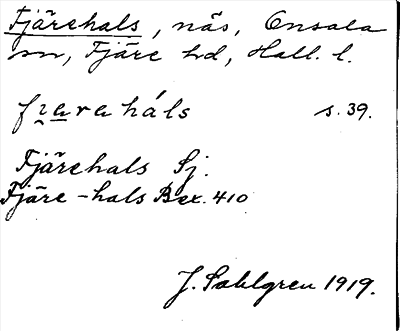 Fjärehals, näs, Onsala
sn, Fjäre hd, Hall. l.
fi̯araháls s. 39.
Fjärehals Sj.
Fjäre-hals Bex. 410
J. Sahlgren 1919.